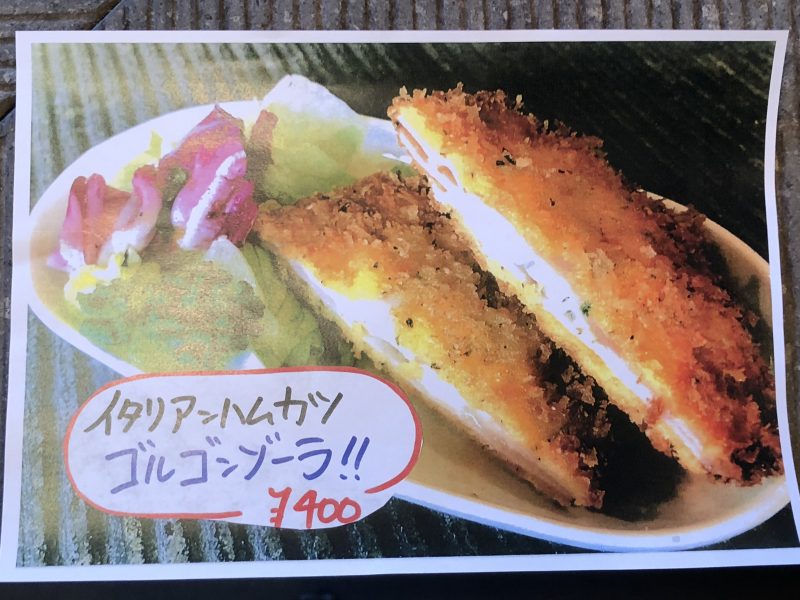 イタリアンハムカツ
ゴルゴンゾーラ!!
¥400